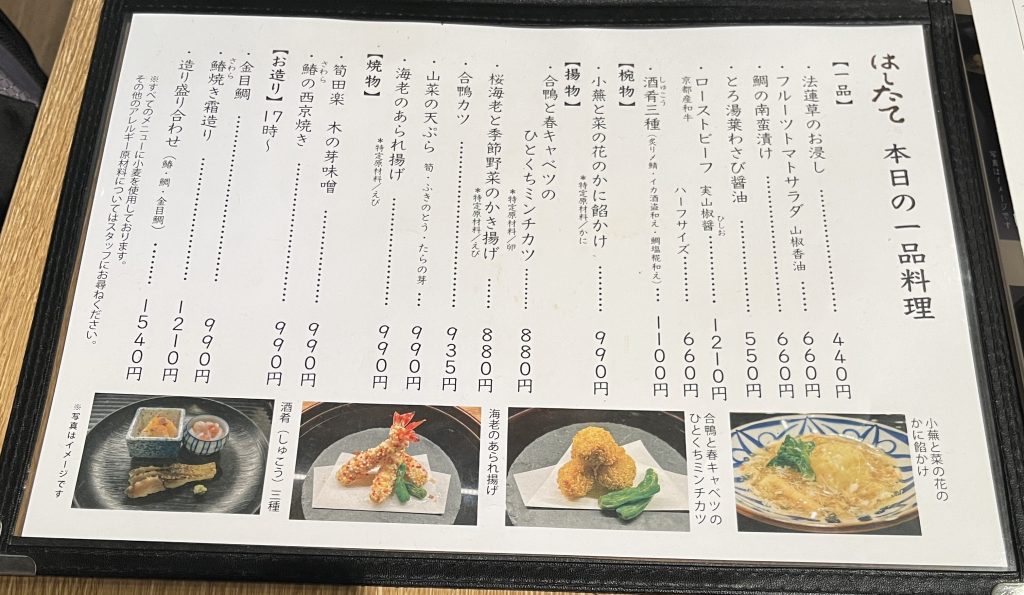 はしたて 本日の一品料理
【一品】
・法蓮草のお浸し……………440円
・フルーツトマトサラダ 山椒香油……660円
・鯛の南蛮漬け……………660円
・とろ湯葉わさび醤油……………550円
・ローストビーフ 実山椒醤……1210円
ひしお
京都産和牛
ハーフサイズ……660円
・酒肴三種(炙り〆鯖・イカ酒盗和え・鯛塩糀和え)…1100円
しゅこう
【椀物】
・小蕪と菜の花のかに餡かけ……990円
*特定原材料/かに
【揚物】
・合鴨と春キャベツの
ひとくちミンチカツ……880円
*特定原材料/卵
・桜海老と季節野菜のかき揚げ……880円
*特定原材料/えび
・合鴨カツ……………935円
・山菜の天ぷら 筍・ふきのとう・たらの芽……990円
・海老のあられ揚げ……………990円
*特定原材料/えび
【焼物】
・筍田楽 木の芽味噌……………990円
・鰆の西京焼き……………990円
さわら
【お造り】17時〜
・金目鯛……………990円
・鰆焼き霜造り……………1210円
さわら
・造り盛り合わせ(鰆・鯛・金目鯛)……1540円
※すべてのメニューに小麦を使用しております。
その他のアレルギー原材料についてはスタッフにお尋ねください。
小蕪と菜の花の
かに餡かけ
合鴨と春キャベツの
ひとくちミンチカツ
海老のあられ揚げ
酒肴(しゅこう)三種
※写真はイメージです